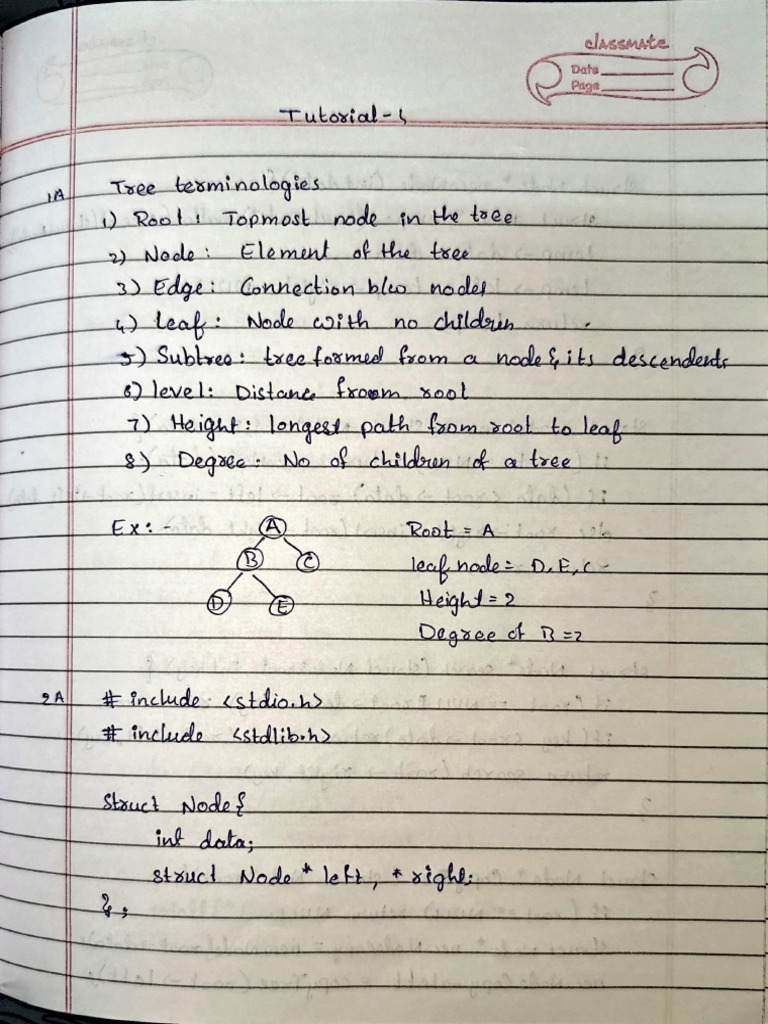 classmate
Date
Page
Tutorial-
1A Tree terminologies
1) Root: Topmost node in the tree
2) Node: Element of the tree
3) Edge: Connection b/w nodes
4) leaf: Node with no children
5) Subtree: tree formed from a node & its descendents
6) level: Distance from root
7) Height: longest path from root to leaf
8) Degree: No of children of a tree
Ex:- A Root = A
B C leaf node = D, E, C
D E Height = 2
Degree of B = 2
2A # include <stdio.h>
# include <stdlib.h>
struct Node{
int data;
struct Node * left, * right;
};